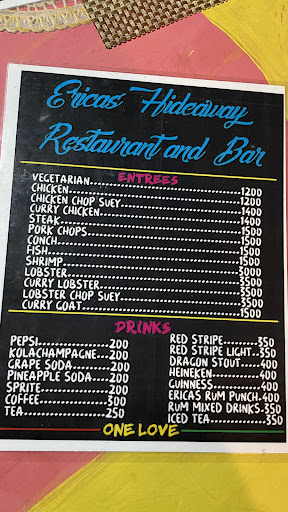 Ericas' Hideaway
Restaurant and Bar
ENTREES
VEGETARIAN...1200
CHICKEN...1200
CHICKEN CHOP SUEY...1400
CURRY CHICKEN...1400
STEAK...1500
PORK CHOPS...1500
CONCH...1500
FISH...1500
SHRIMP...1500
LOBSTER...3000
CURRY LOBSTER...3500
LOBSTER CHOP SUEY...3500
CURRY GOAT...1500
DRINKS
PEPSI...200
KOLACHAMPAGNE...200
GRAPE SODA...200
PINEAPPLE SODA...200
SPRITE...200
COFFEE...300
TEA...250
RED STRIPE...350
RED STRIPE LIGHT...350
DRAGON STOUT...400
HEINEKEN...400
GUINNESS...400
ERICAS RUM PUNCH.400
RUM MIXED DRINKS.350
ICED TEA...350
ONE LOVE